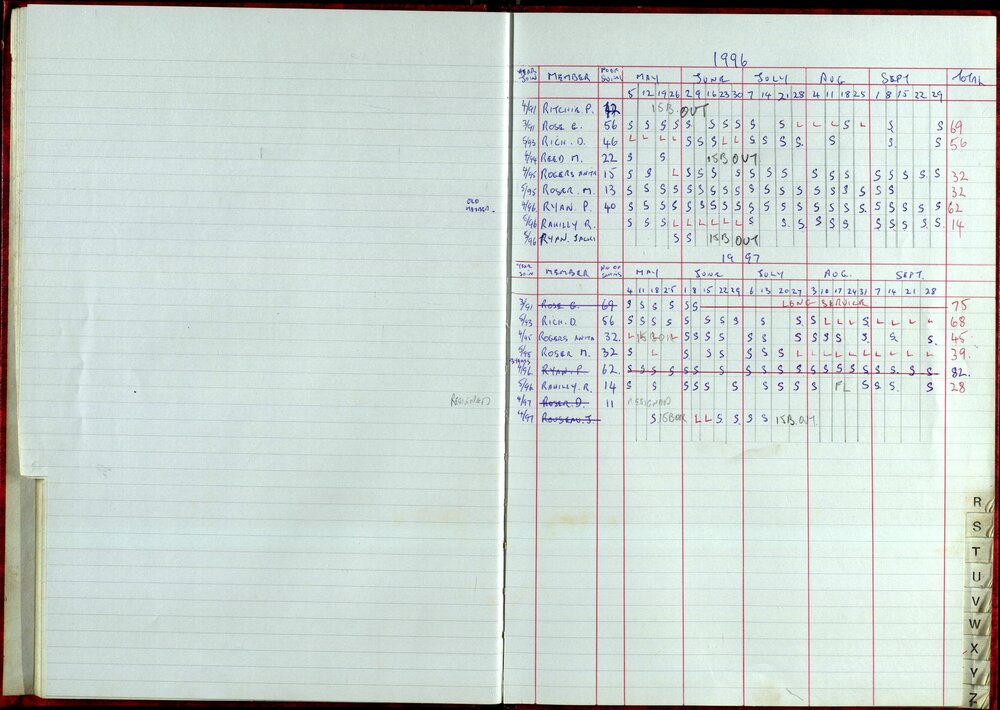 1996
YEAR JOIN MEMBER PREV SWIMS MAY JUNE JULY AUG SEPT TOTAL
5 12 19 26 2 9 16 23 30 7 14 21 28 4 11 18 25 1 8 15 22 29
4/91 RITCHIE P. 15B OUT
3/91 ROSE G. 56 S S S S S S S S S S L L L S L S S 69
5/93 RICH. D. 46 L L L L S S S L L S S S S S S S 56
4/94 REED M. 22 S S 15B OUT
4/95 ROGERS ANITA 15 S S L S S S S S S S S S S S S S S S 32
5/95 ROSER. M. 13 S S S S S S S S S S S S S S S S S S S 32
OLD MEMBER.
4/96 RYAN. P. 40 S S S S S S S S S S S S S S S S S S S S S S 62
5/96 RAHILLY R. S S S L L L L L L S S S S S S S S S S S 14
5/96 RYAN. JACKI S S 15B OUT
1997
YEAR JOIN MEMBER NO OF SWIMS MAY JUNE JULY AUG. SEPT.
4 11 18 25 1 8 15 22 29 6 13 20 27 3 10 17 24 31 7 14 21 28
3/91 ROSE G. 69 S S S S S S LONG SERVICE 75
5/93 RICH. D 56 S S S S S S S S S S S S L L L S L L L L 68
4/95 ROGERS ANITA 32. L 15B OUT L S S S S S S S S S S S S S S. 45
5/95 ROSER M. 32 S L S S S S S S L L L L L L L L L 39.
4/96 RYAN. P. 62. S S S S S S S S S S S S S S S S S S S S 82.
5/96 RAHILLY. R. 14 S S S S S S S S S S FL S S S S 28
RESIGNED
4/97 ROSER. D. 11 RESIGNED
4/97 ROUSEAU. J. S 15B OUT L L S S S S 15B. OUT
R
S
T
U
V
W
X
Y
Z